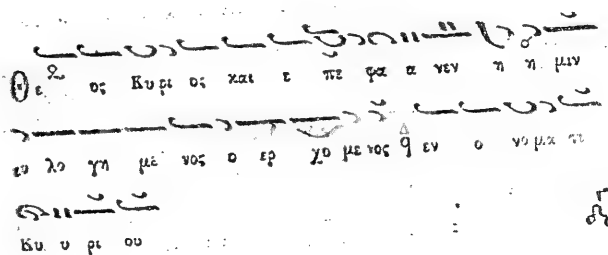 Θε ος Κυρι ος και ε πε φα α νεν η η μιν
ευ λο γη με νος ο ερ χο με νος εν ο νο μα τι
Κυ υ ρι ου